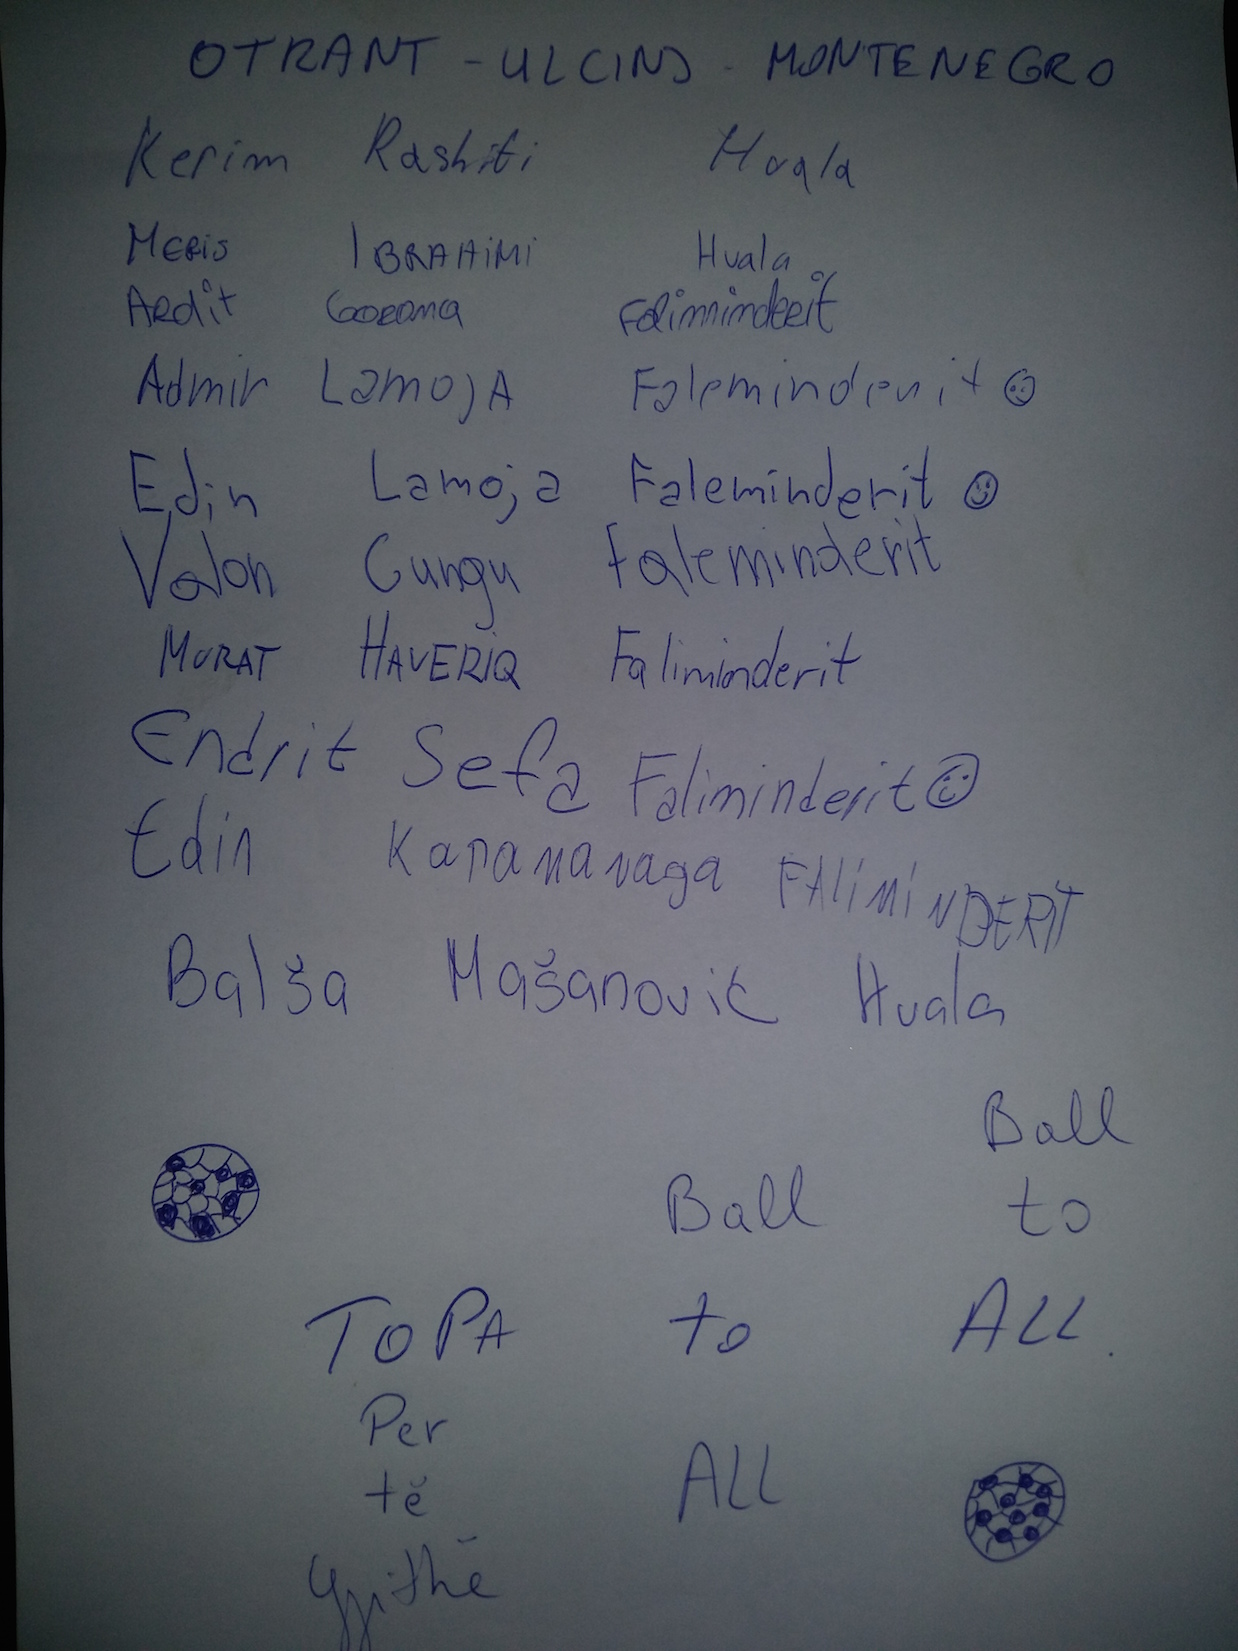 OTRANT - ULCINJ - MONTENEGRO
Kerim Rashiti Hvala
MERIS IBRAHIMI Hvala
Ardit Falimninderit
Admir LamojA Faleminderit
Edin Lamoja Faleminderit
Valon Cungu Faleminderit
MURAT HAVERIQ Faliminderit
Endrit Sefa Faliminderit
Edin Karamanaga FALIMINDERIT
Balša Mašanović Hvala
Ball
to
ALL
Ball
to
ALL
TOPA
Per
të
gjithë